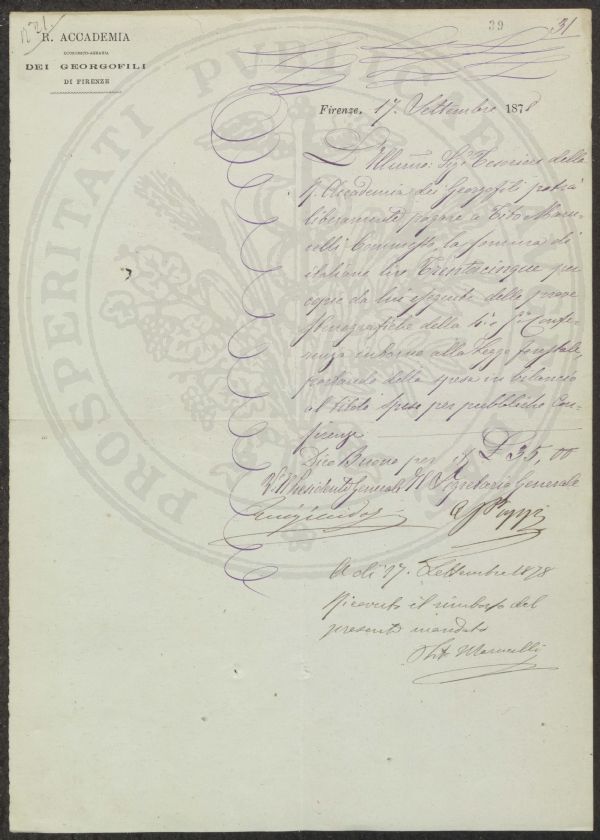 n° 21.
39
31
R. ACCADEMIA
ECONOMICO-AGRARIA
DEI GEORGOFILI
DI FIRENZE
PROSPERITATI PUBLICAE
Firenze, 17. Settembre 1878
L'Illmo: Sigr Tesoriere della
R. Accademia dei Georgofili potrà
liberamente pagare a Tito Maru-
celli Commesso, la somma di
italiane lire Trentacinque per
copie da lui eseguite delle prove
stenografiche della Confe-
renza intorno alla Legge forestale,
portando della spesa in bilancio
al titolo spese per pubbliche Con-
ferenze
Dico Buono per it. L 35,00
Vo Il Presidente Generale Il Segretario Generale
A dì 17. Settembre 1878
Ricevuto il rimborso del
presente mandato
Tito Marucelli